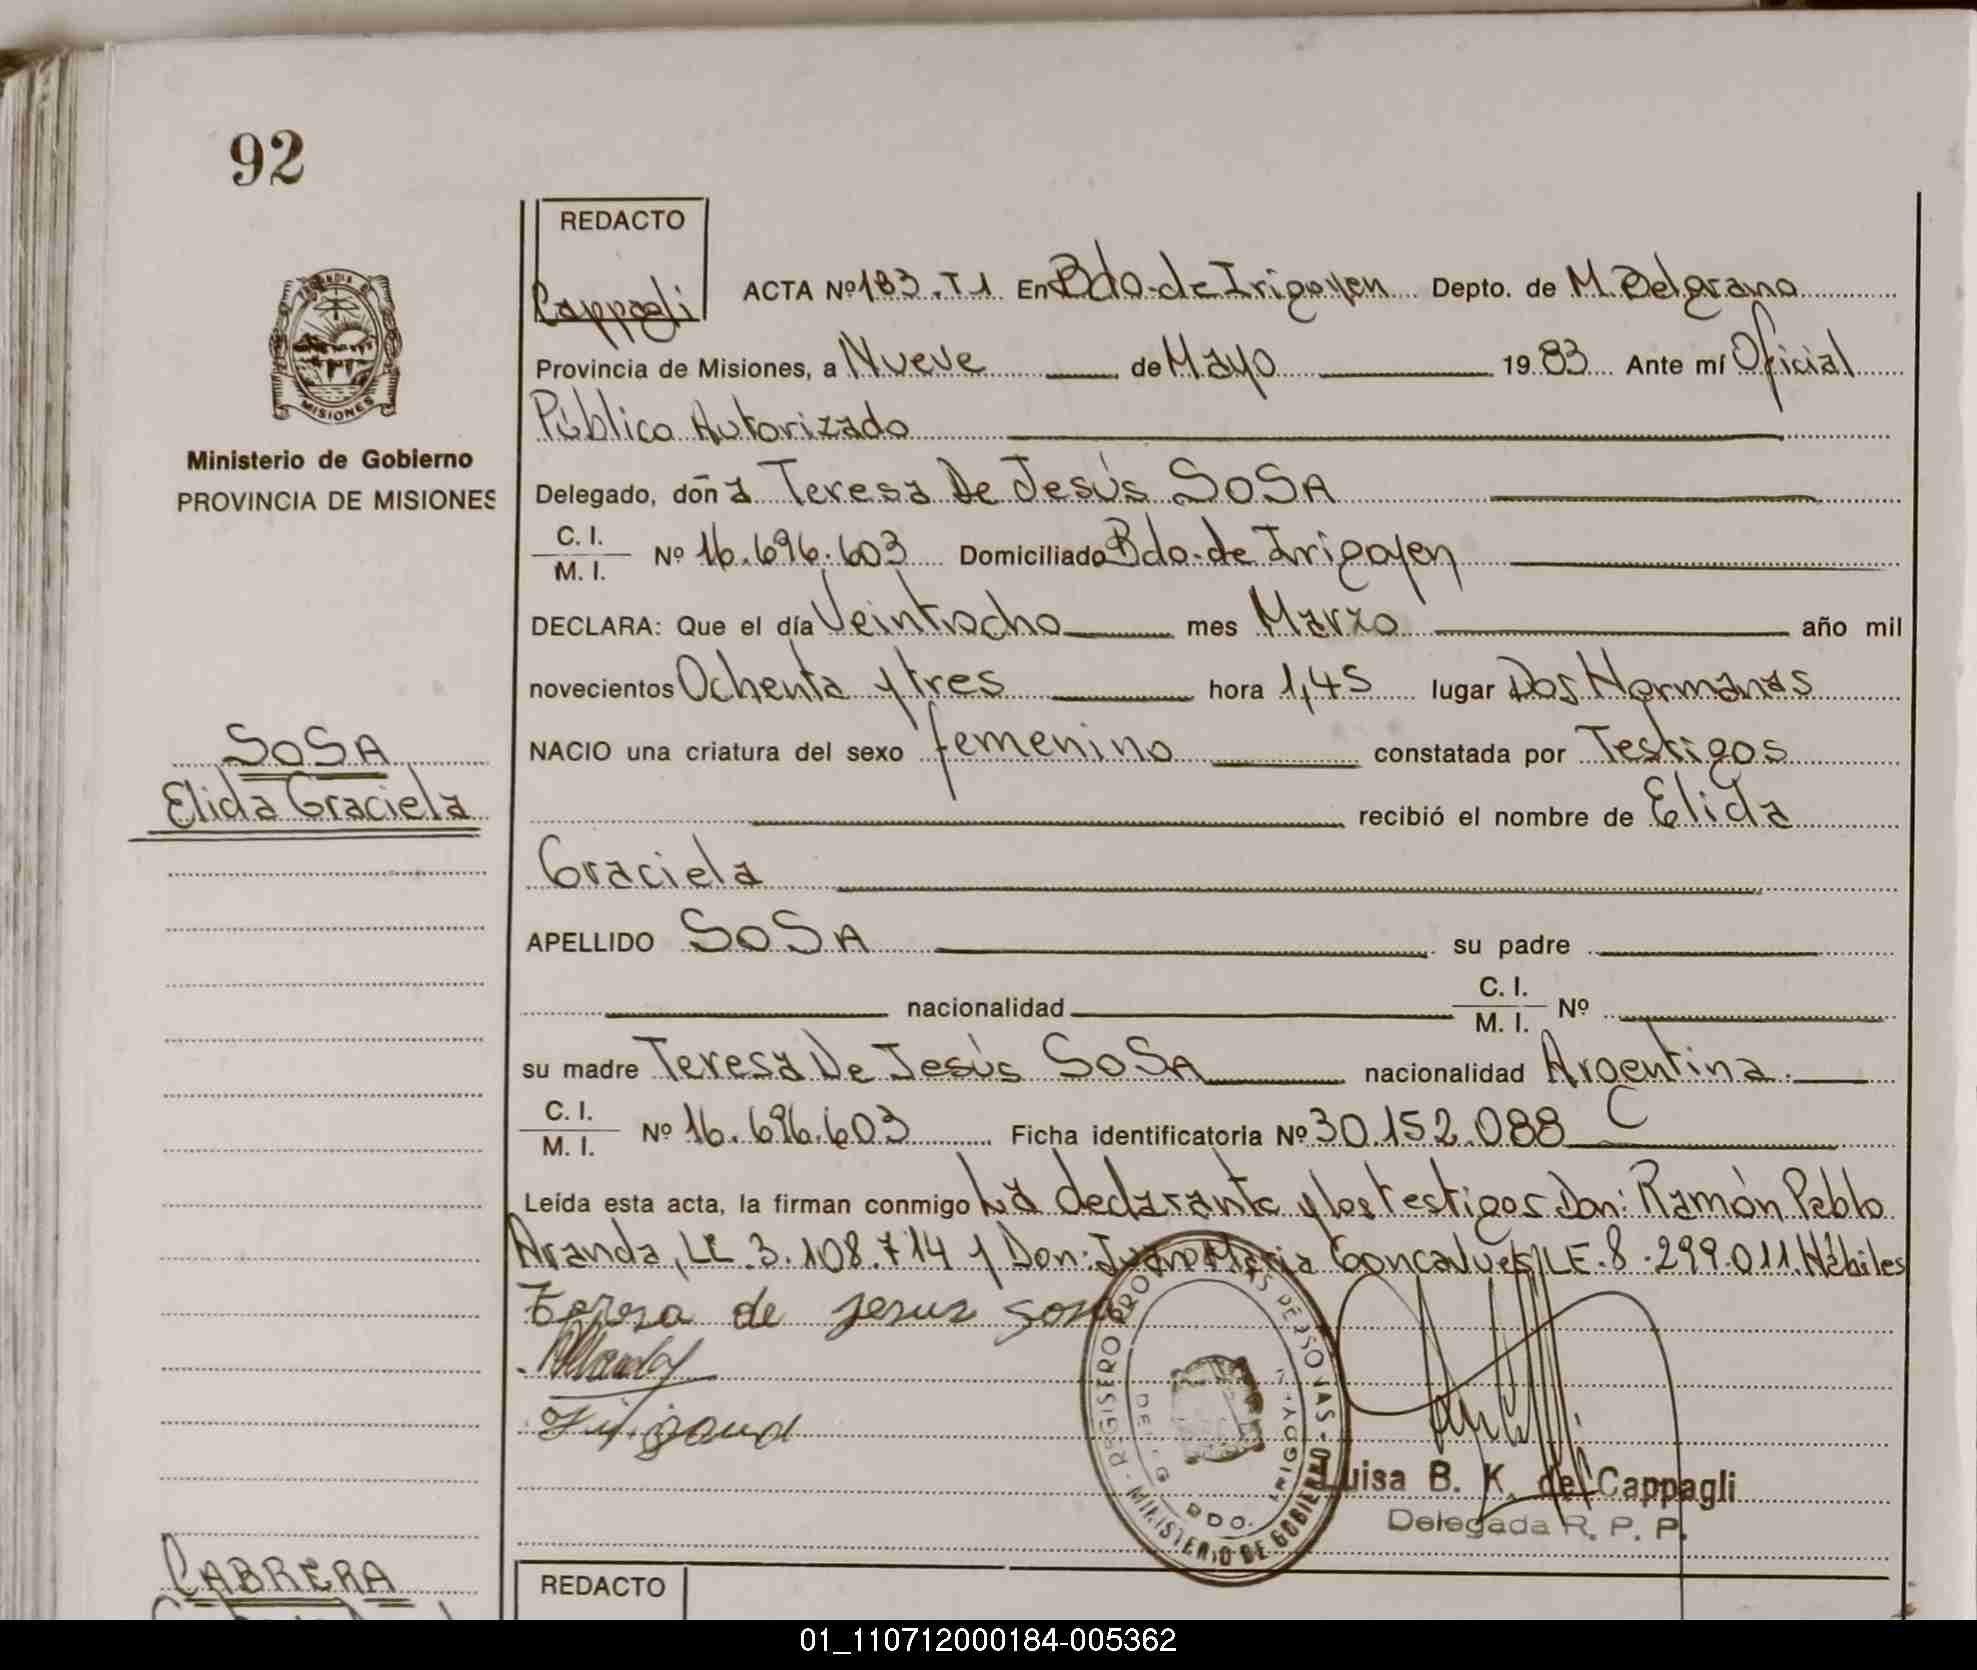 92
REDACTO
Cappagli
ACTA Nº 183. T1 En Bdo. de Irigoyen Depto. de M. Belgrano
Provincia de Misiones, a Nueve de Mayo 1983 Ante mí Oficial
Público Autorizado
Ministerio de Gobierno
PROVINCIA DE MISIONES
Delegado, doña Teresa De Jesús SOSA
C. I.
M. I. Nº 16.696.603 Domiciliado Bdo. de Irigoyen
DECLARA: Que el día Veintiocho mes Marzo año mil
novecientos Ochenta y tres hora 1,45 lugar Dos Hermanas
NACIO una criatura del sexo femenino constatada por Testigos
SOSA
Elida Graciela
recibió el nombre de Elida
Graciela
APELLIDO SOSA su padre
nacionalidad C. I.
M. I. Nº
su madre Teresa De Jesús SOSA nacionalidad Argentina.
C. I.
M. I. Nº 16.696.603 Ficha identificatoria Nº 30.152.088 C
Leída esta acta, la firman conmigo La declarante y los testigos Don: Ramón Pablo
Aranda, LE. 3.108.714 y Don: Juan Maria Goncalves, LE. 8.299.011. Hábiles
Teresa de jesus sosa
MISIONES
MINISTERIO DE GOBIERNO
BDO. IRIGOYEN
Luisa B. K. de Cappagli
Delegada R. P. P.
CABRERA
REDACTO
01_110712000184-005362